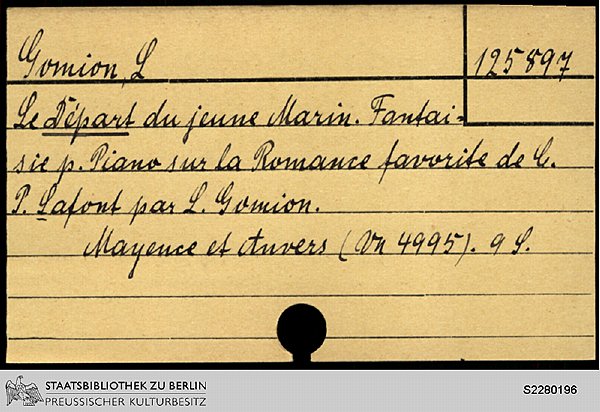 Gomion, L
125897
Le Départ du jeune Marin. Fantai-
sie p. Piano sur la Romance favorite de C.
P. Lafont par L. Gomion.
Mayence et Anvers (Vn 4995). 9 S.
STAATSBIBLIOTHEK ZU BERLIN
PREUSSISCHER KULTURBESITZ
S2280196